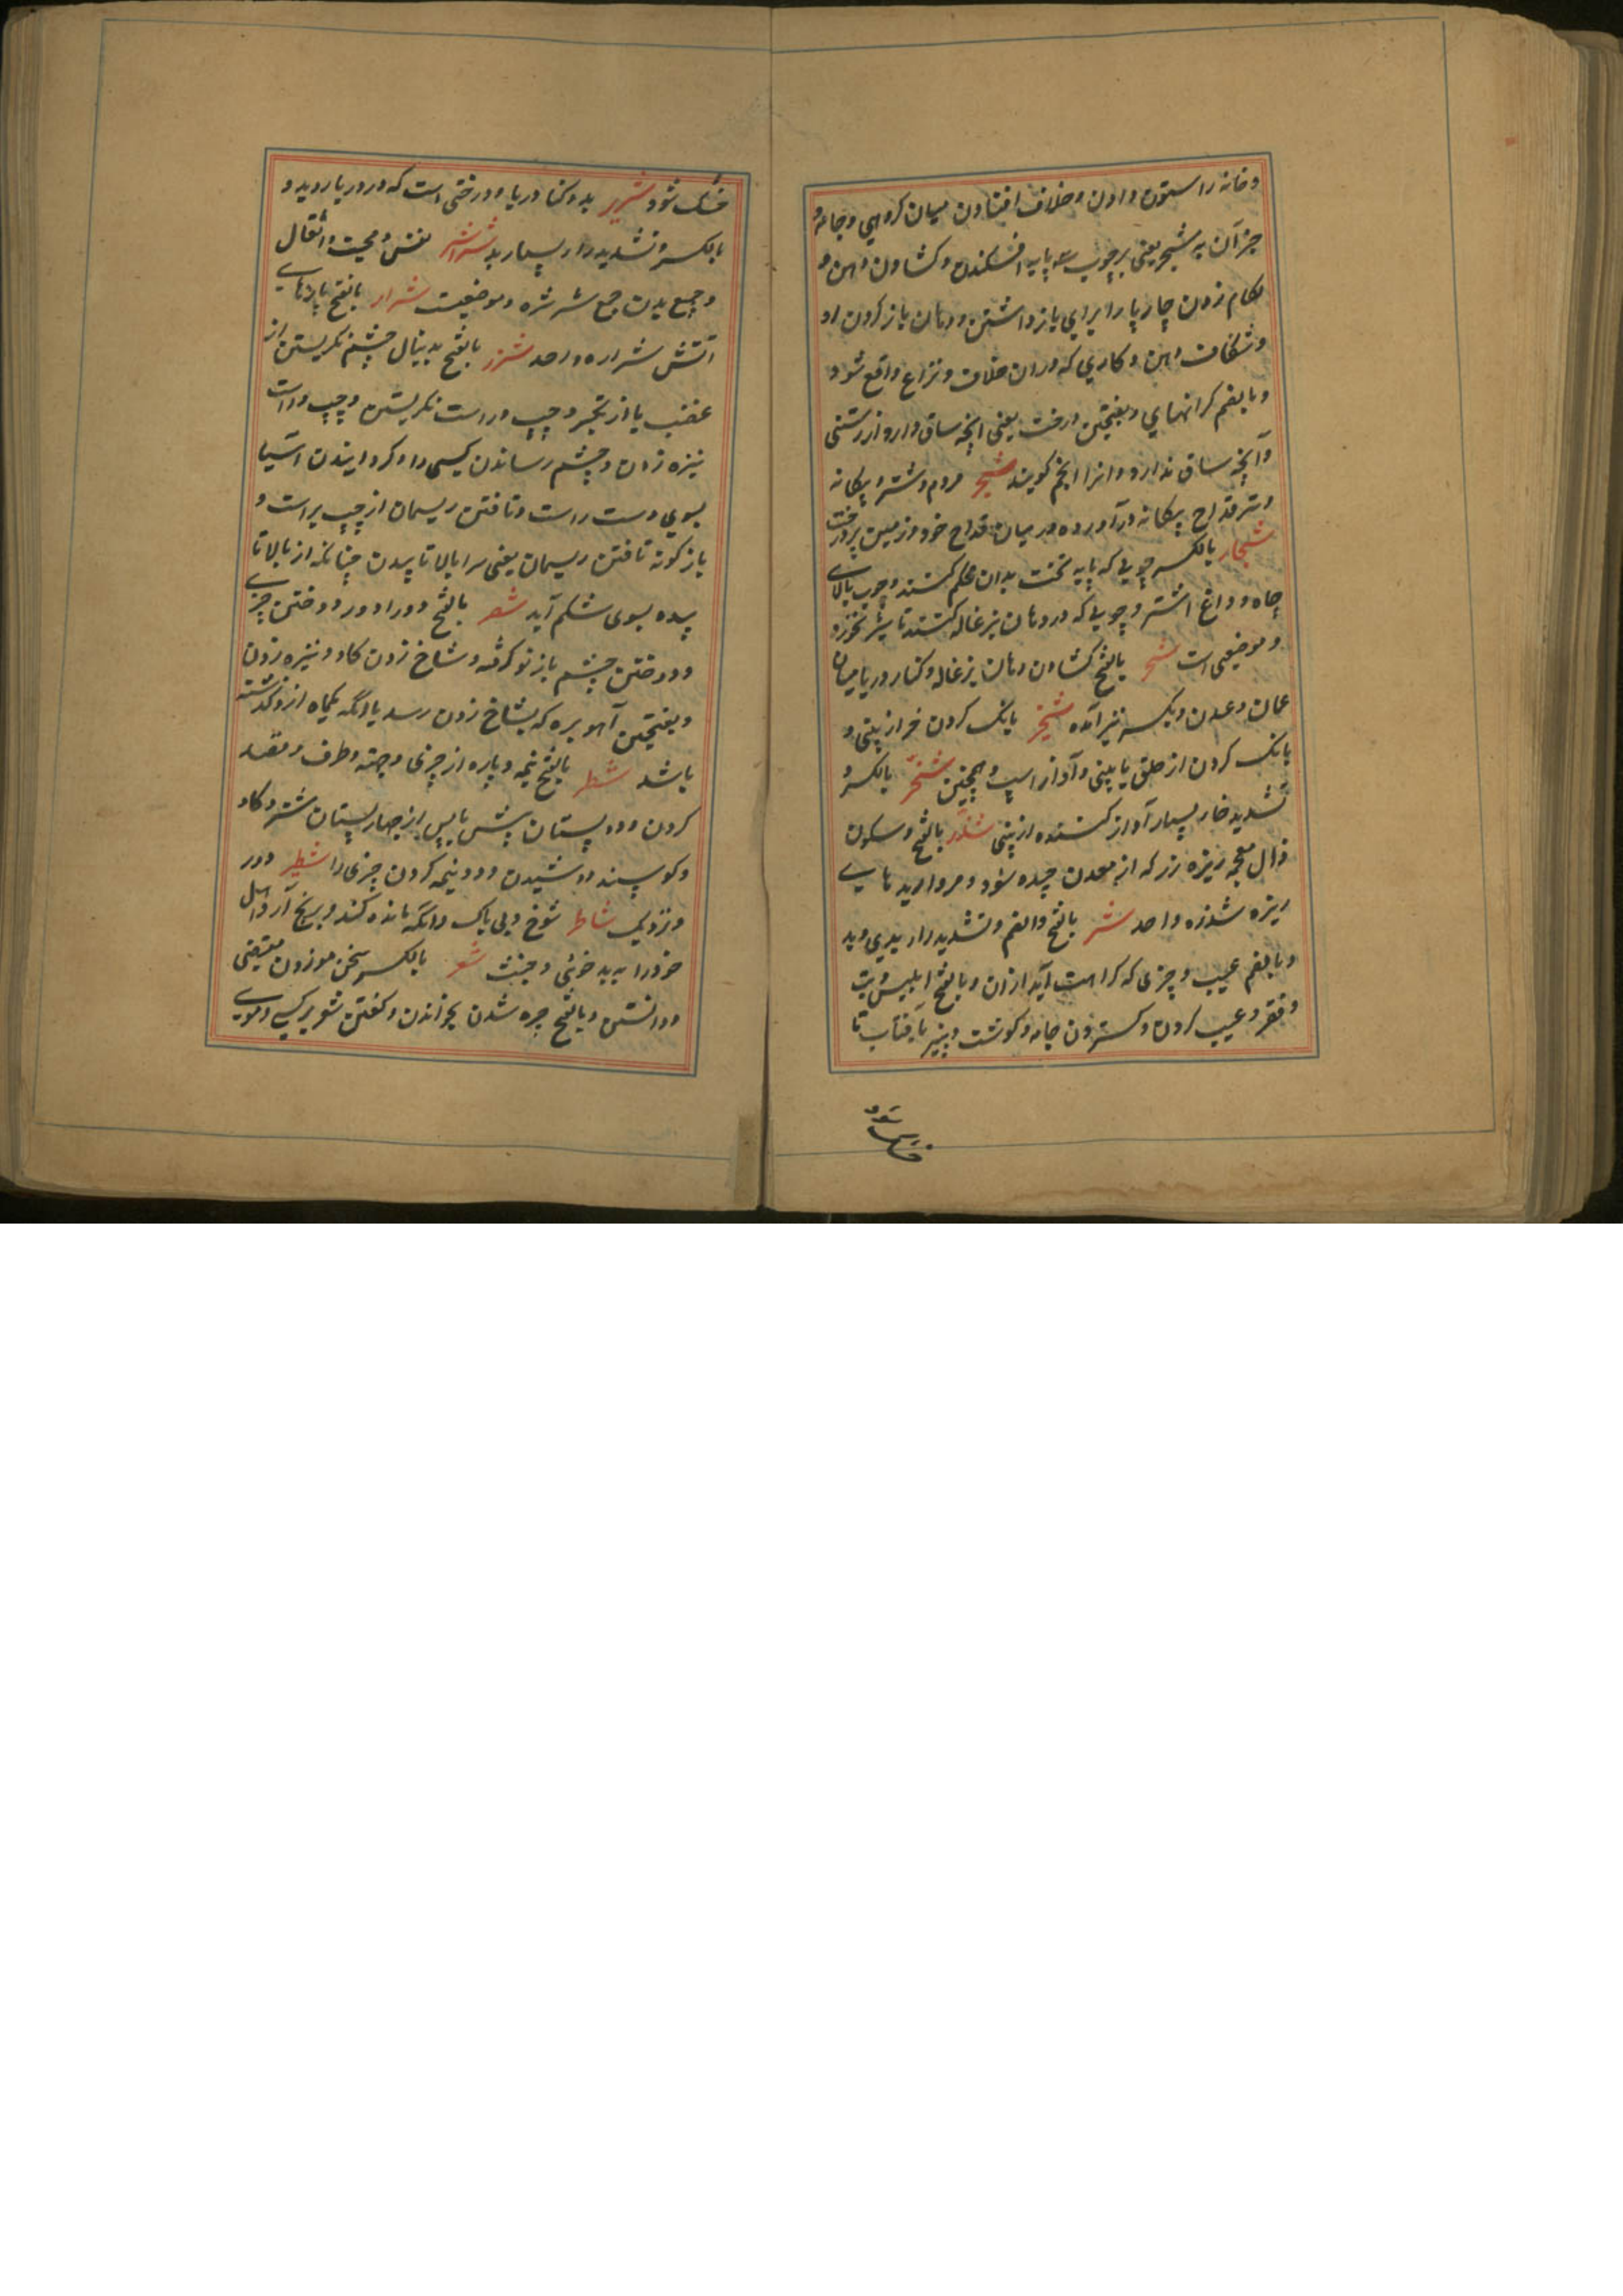 وخانه را ستون دادن وخلاف افتادن میان کروهی وجامه و
جز آن به شجر یعنی بر چوب سه پایه افکندن وکشادن دهن و
لکام زدن چارپا را برای باز داشتن ودهان باز کردن او
وشکاف دهن وکاری که دران خلاف ونزاع واقع شود
وبالضم کرانهای وبفتحتین درخت یعنی انچه ساق دارد از رستنی
وآنچه ساق ندارد وانرا نجم کویند شجیر مردم وشتر بیکانه
وتیر قداح بیکانه درآورده در میان قداح خود وزمین پردرخت
شجار بالکسر چوبی که پایه تخت بدان محکم کنند وچوب بالای
چاه وداغ اشتر وچوبی که در دهان بزغاله کنند تا شیر نخورد
وموضعی است شحر بالفتح کشادن دهان بزغاله وکنار دریا میان
عمان وعدن وبکسر نیز آمده شخیر بانک کردن خر از بینی و
بانک کردن از حلق یا بینی وآواز اسپ وهمچنین شخیّر بالکسر و
تشدید خا بسیار آواز کننده از بینی شذر بالفتح وسکون
ذال معجمه ریزه زر که از معدن چیده شود ومروارید های
ریزه شذره واحد شر بالفتح والضم وتشدید را بدی وبد
وبالضم عیب وچیزی که کراهت آید ازان وبالفتح ابلیس وتب
وفقر وعیب کردن وکستردن جامه وکوشت وپنیر بآفتاب تا
خشک شود
خشک شود شریر بد وکنار دریا ودرختی است که در دریا روید و
بالکسر وتشدید را بسیار بد شراشر نفس ومحبت واثقال
وجمیع بدن جمع شرشره وموضعیست شرار بالفتح پارهای
آتش شراره واحد شزر بالفتح بدنبال چشم نکریستن از
غضب یا از تکبر وچپ وراست نکریستن وچپ وراست
نیزه زدن وچشم رساندن کسی را وکردانیدن آسیا
بسوی دست راست وتافتن ریسمان از چپ براست و
باز کونه تافتن ریسمان یعنی سرا بالا تابیدن چنانکه از بالا تا
بیده بسوی شکم آید شصر بالفتح دور ادور دوختن چیزی
ودوختن چشم باز نو کرفته وشاخ زدن کاو ونیزه زدن
وبفتحتین آهو بره که بشاخ زدن رسد یا انکه یکماه ازو کذشته
باشد شطر بالفتح نیمه وپاره از چیزی وجهته وطرف وقصد
کردن ودو پستان پیش یا پس از چهار پستان شتر وکاو
وکوسپند دوشیدن ودو نیمه کردن چیزی را شطیر دور
ونزدیک شاطر شوخ وبی باک وانکه مانده کند وبرنج آرد اهل
خود را به بد خوئی وخبث شعر بالکسر سخن موزون مقفی
ودانستن وبالفتح چیره شدن بخواندن وکفتن شعر بر کسی وموی